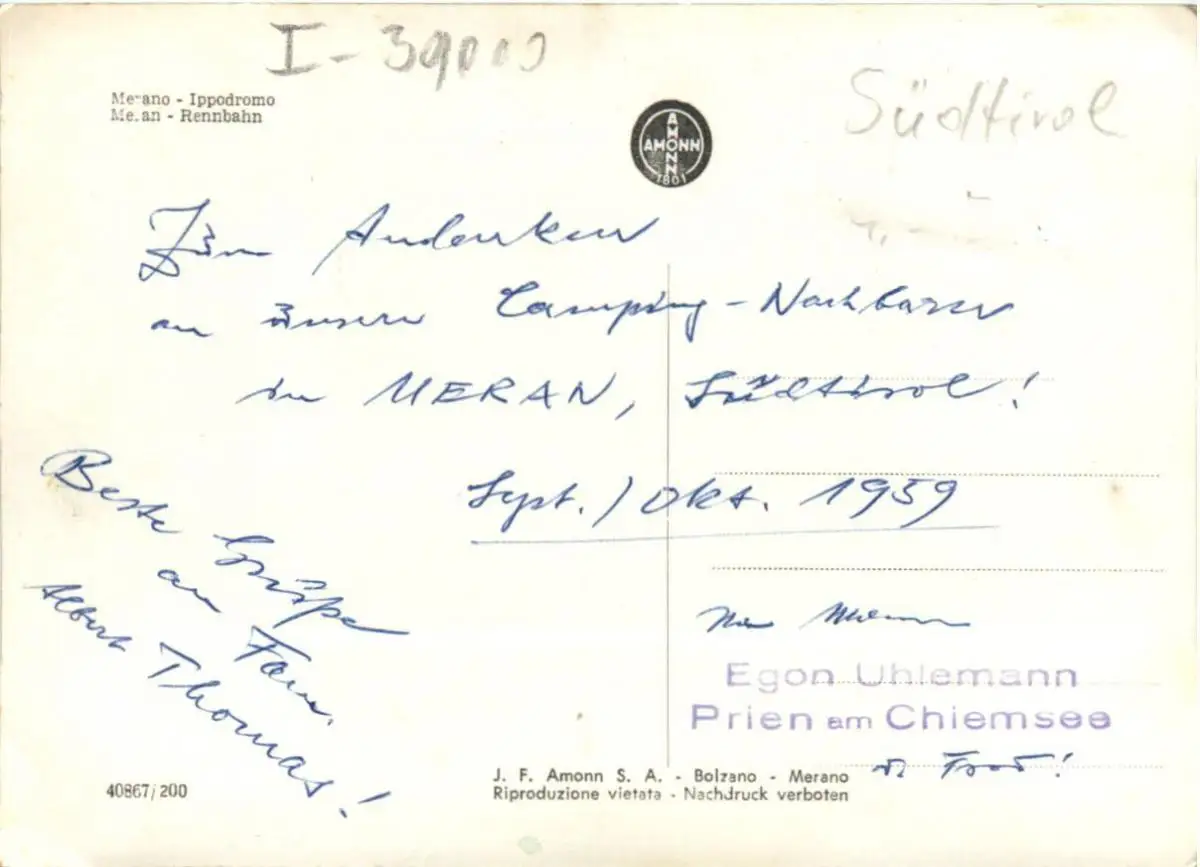 I-39000
Merano - Ippodromo
Meran - Rennbahn
Südtirol
AMONN
AMONN
1801
Zum Andenken
an unsere Camping-Nachbarn
in MERAN, Südtirol!
Sept./Okt. 1959
Beste Grüße
an Fam.
Albert Thomas!
Egon Uhlemann
Prien am Chiemsee
Frau!
40867/200
J. F. Amonn S. A. - Bolzano - Merano
Riproduzione vietata - Nachdruck verboten